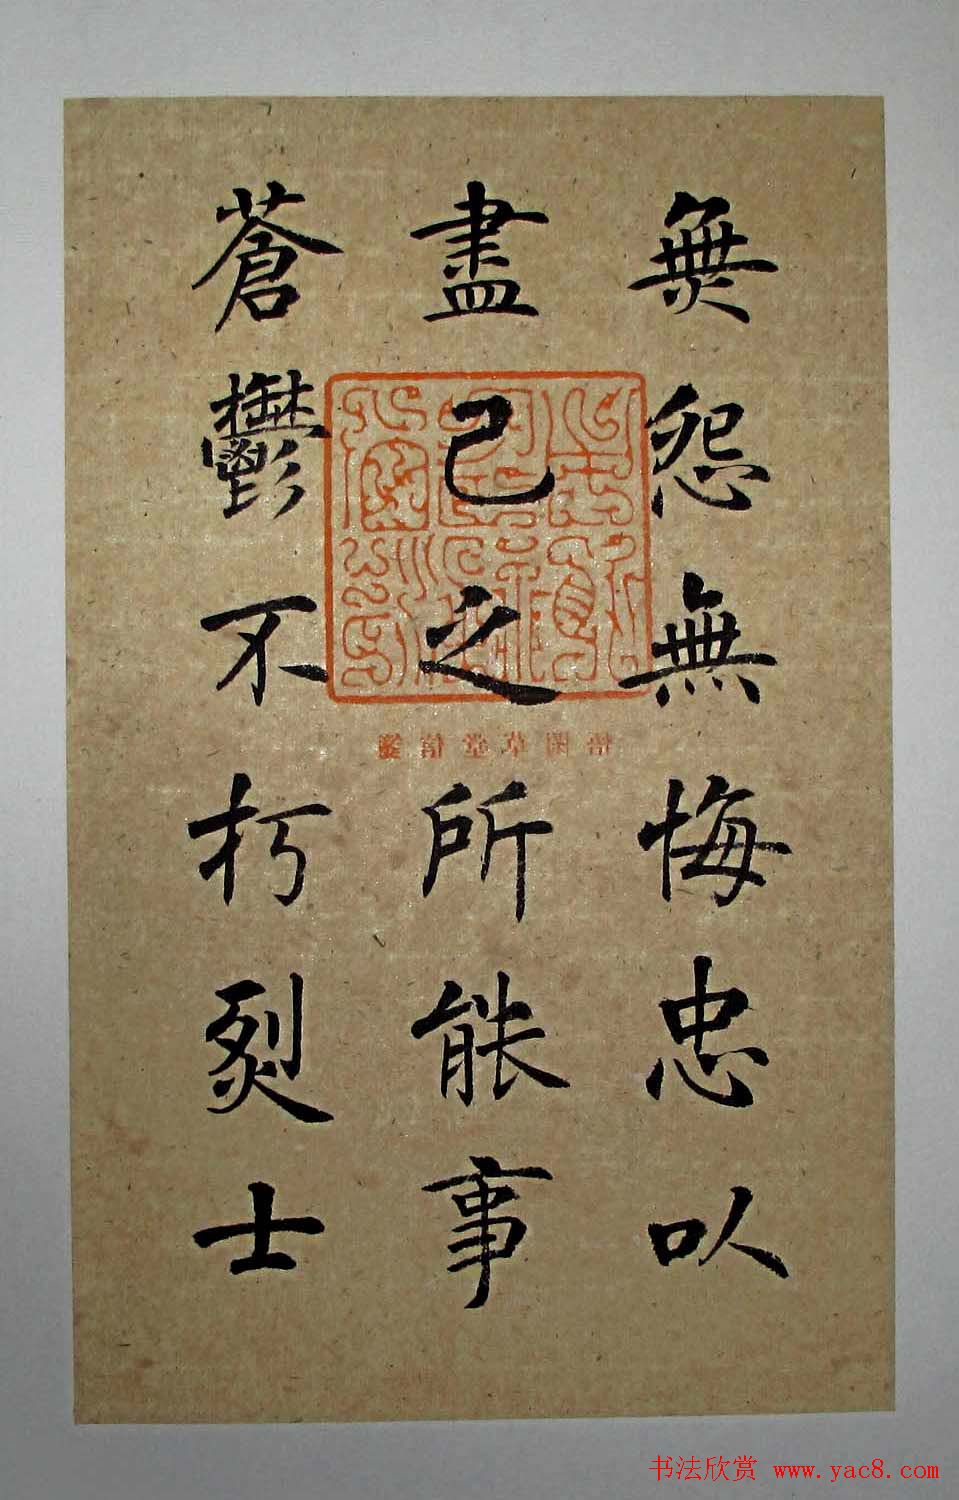 無怨無悔忠以
盡己之所能事
蒼鬱不朽烈士
書法欣赏 www.yac8.com